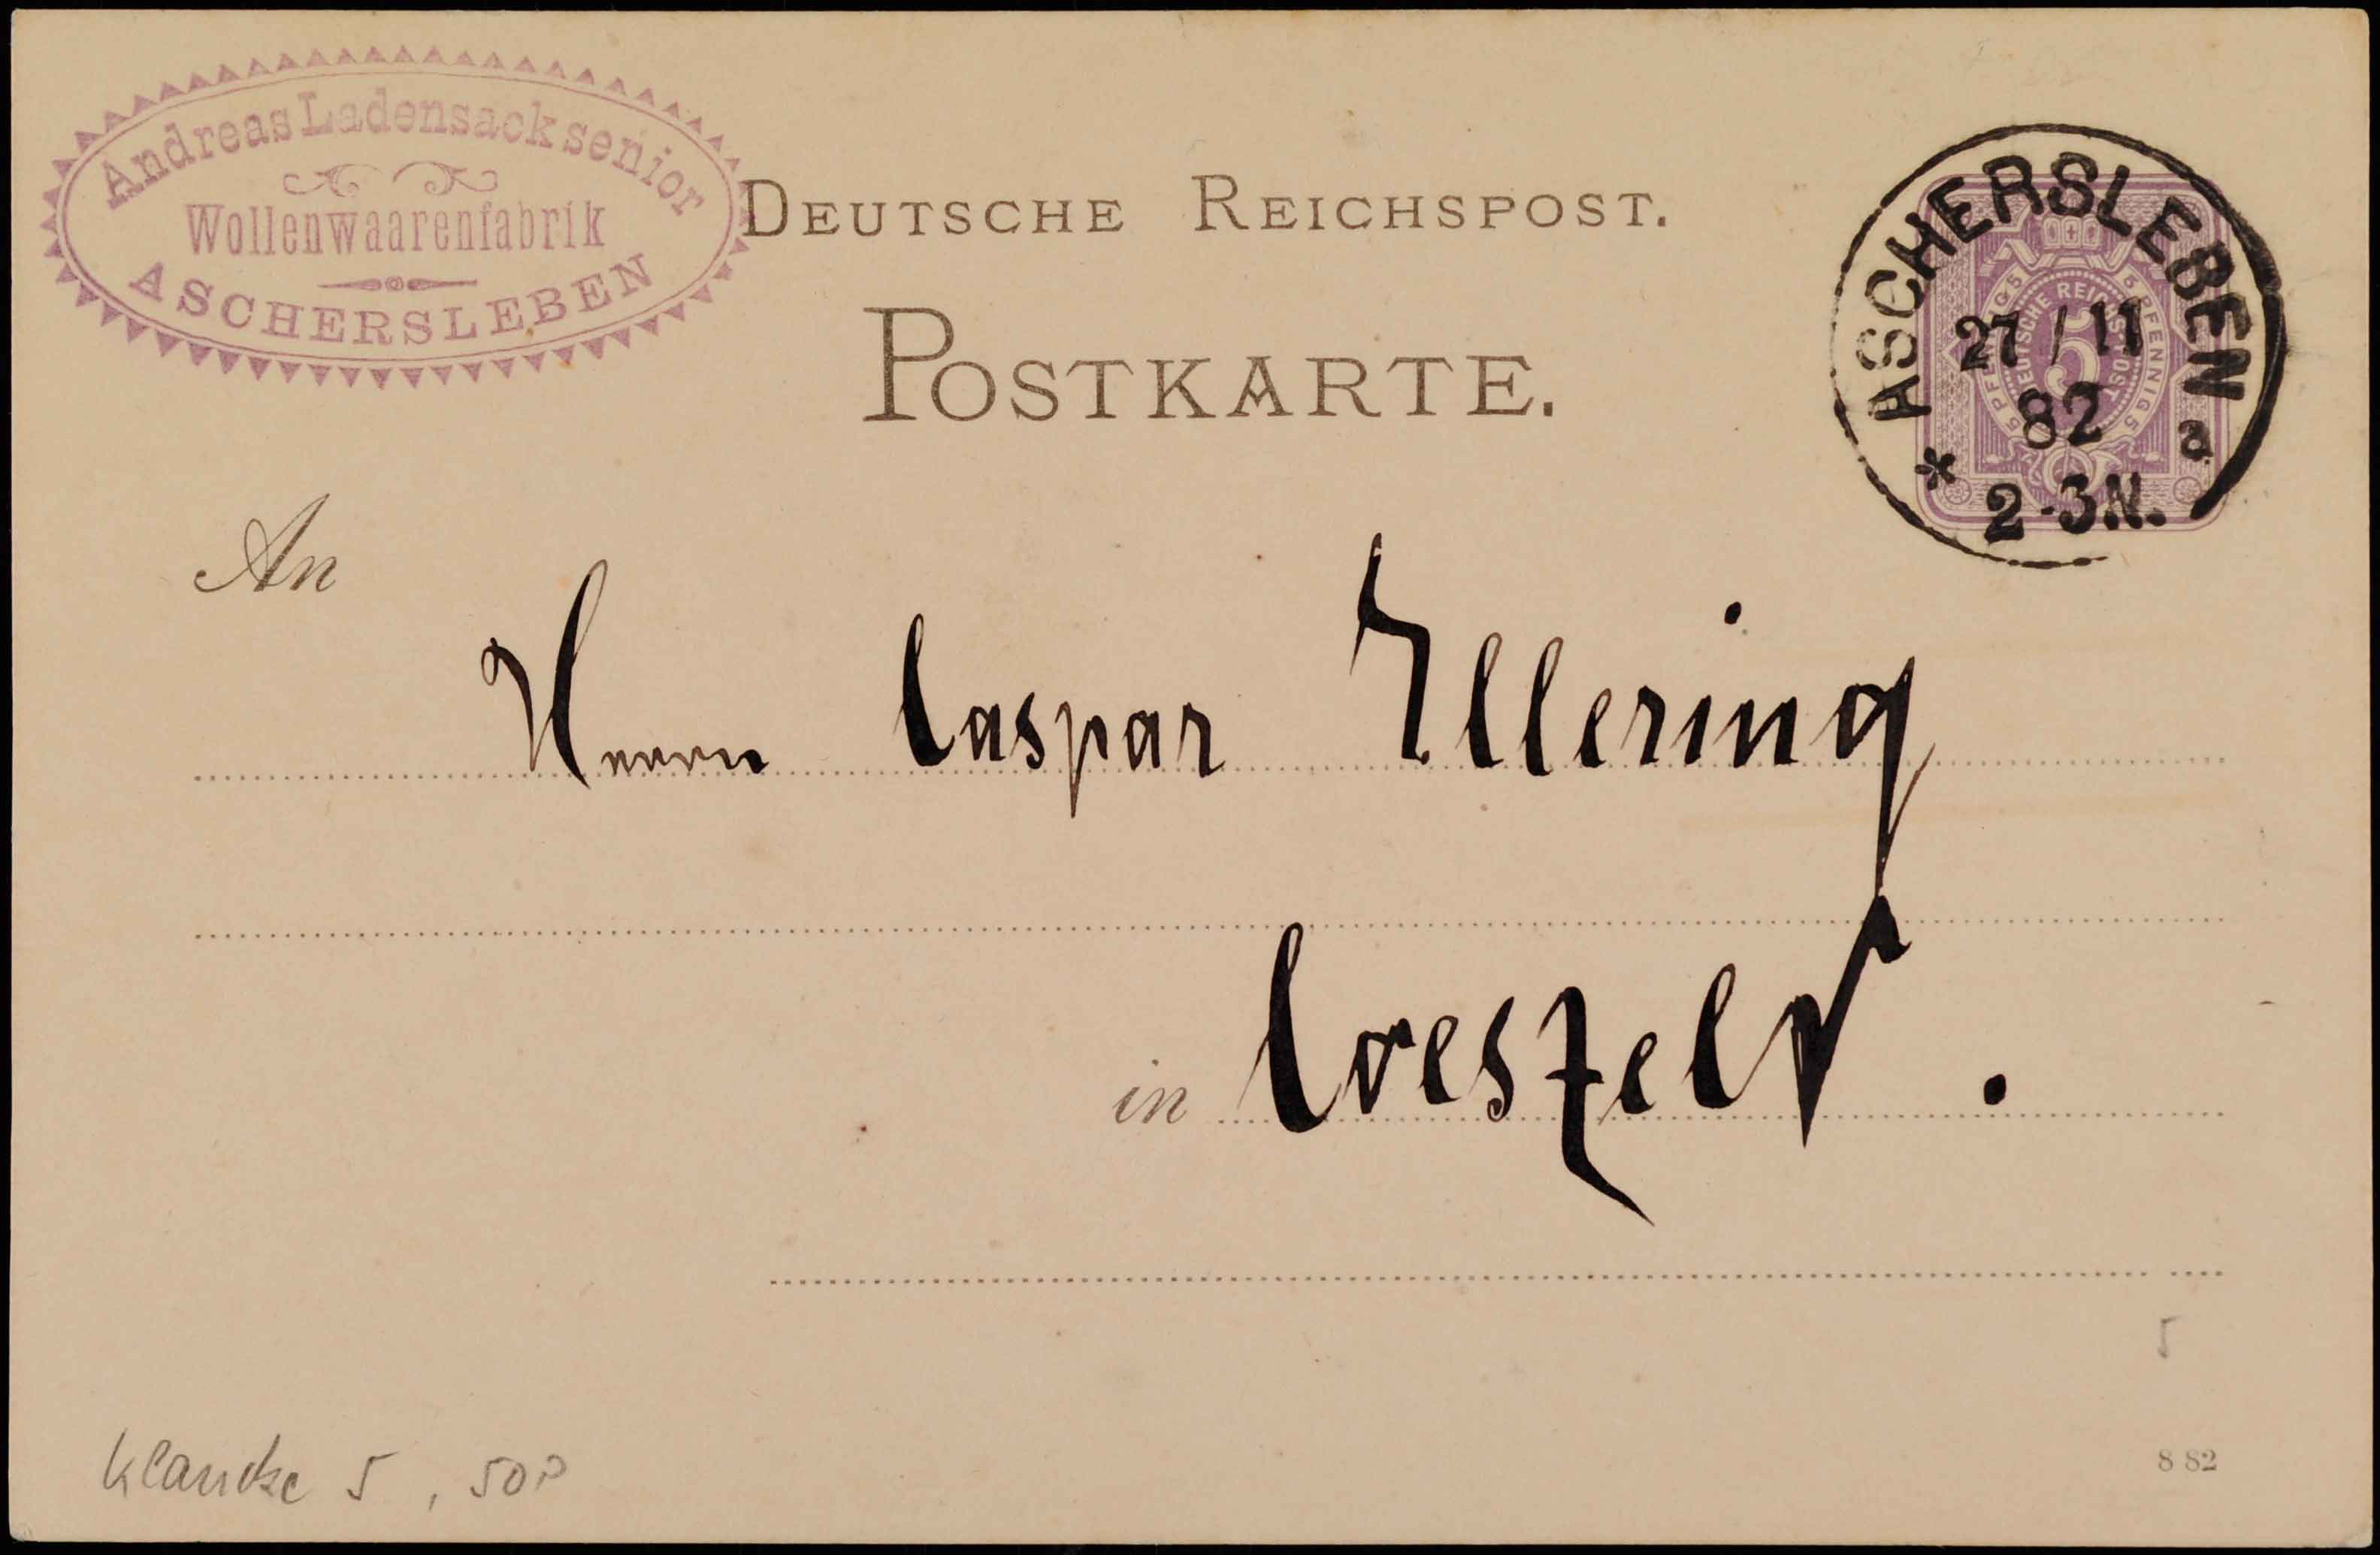 Andreas Ladensack senior
Wollenwaarenfabrik
ASCHERSLEBEN
DEUTSCHE REICHSPOST.
POSTKARTE.
ASCHERSLEBEN
27/11
82
* a
2-3N.
5 PFENNIG 5 5 PFENNIG 5
DEUTSCHE REICHSPOST
5
An
Herrn Caspar Ellering
in Coesfeld.
5
8 82
Klaucke 5, 50P